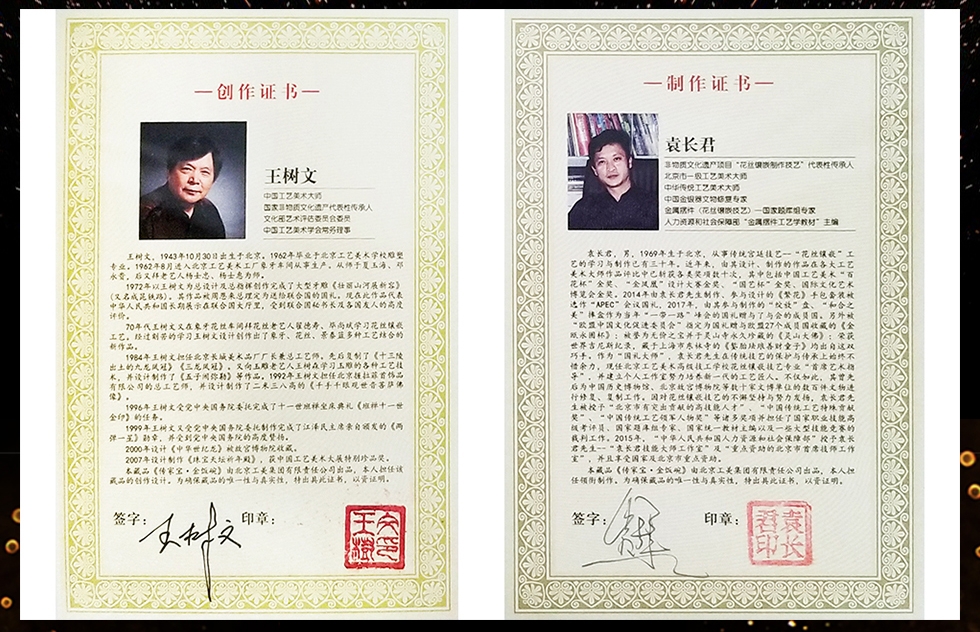 创作证书
王树文
中国工艺美术大师
国家非物质文化遗产代表性传承人
文化部艺术评估委员会委员
中国工艺美术学会常务理事
王树文，1943年10月30日出生于北京。1962年毕业于北京工艺美术学校雕塑
专业。1962年8月进入北京工艺美术工厂象牙车间从事生产，从师于夏玉海、邓
永贵，后又拜老艺人杨士忠、杨士惠为师。
1972年以王树文为总设计及总指挥创作完成了大型牙雕《壮丽山河展新容》
（又名成昆铁路）。其作品被周恩来总理定为送给联合国的国礼。现在此作品代表
中华人民共和国长期展示在联合国大厅里，受到联合国秘书长及各国友人的高度
评价。
70年代王树文又在象牙花丝车间拜花丝老艺人翟德寿、毕尚斌学习花丝镶嵌
工艺。经过刻苦的学习王树文设计创作出了象牙、花丝、景泰蓝多种工艺结合的
新作品。
1984年王树文担任北京长城美术品厂厂长兼总工艺师。先后复制了《十三陵
出土的九龙凤冠》《三龙凤冠》。又向玉雕老艺人王树森学习玉雕的各种工艺技
术，并设计制作了《五子闹弥勒》等作品。1992年王树文担任北京握拉菲首饰品
有限公司的总工艺师，并设计制作了二米三人高的《千手千眼观世音菩萨佛
像》。
1996年王树文受党中央国务院委托完成了十一世班禅坐床典礼《班禅十一世
金印》的任务。
1999年王树文受党中央国务院委托制作完成了江泽民主席亲自颁发的《两
弹一星》勋章，并受到党中央国务院的高度赞扬。
2000年设计《中华世纪龙》被故宫博物院收藏。
2007年设计制作《珠宝天坛祈年殿》，获中国工艺美术大展特别珍品奖。
本藏品《传家宝·金饭碗》由北京工美集团有限责任公司出品，本人担任该
藏品的创作设计。为确保藏品的唯一性与真实性，特出具此证书，以资证明。
签字：王树文 印章：
制作证书
袁长君
非物质文化遗产项目“花丝镶嵌制作技艺”代表性传承人
北京市一级工艺美术大师
中华传统工艺美术大师
中国金银器文物修复专家
金属摆件（花丝镶嵌技艺）—国家题库组专家
人力资源和社会保障部“金属摆件工艺学教材”主编
袁长君，男，1969年生于北京，从事传统宫廷技艺--“花丝镶嵌”工
艺的学习与制作已有三十年。近年来，由其设计、制作的作品在各大工艺
美术大师作品评比中已斩获各类奖项数十次，其中包括中国工艺美术“百
花杯”金奖、“金凤凰”设计大赛金奖、“国艺杯”金奖、国际文化艺术
博览会金奖。2014年由袁长君先生制作、参与设计的《繁花》手包套装被
选作“APEC”会议国礼，2017年，由其参与制作的“
峰会的国礼赠与了与会的成员国。另外被
“欧盟中国文化促进委员会”指定为国礼赠与欧盟27个成员国收藏的《金
瓯永固杯》；被誉为无价之宝并于灵山寺永久珍藏的《灵山大佛》；荣获
世界吉尼斯纪录，藏于上海
巧手。作为“国礼大师”，袁长君先生在传统技艺的保护与传承上始终不
惜余力，现任北京工艺美术高级技工学校花丝镶嵌技艺专业“首席艺术指
导”，并建立个人工作室努力培养新一代的工艺匠人。不仅如此，其曾先
后为中国历史博物馆、北京故宫博物院等数十家文博单位的数百件文物进
行修复、复制工作。因对花丝镶嵌技艺的不懈坚持与努力发扬，袁长君先
生被授予“北京市有突出贡献的高技能人才”、“中国传统工艺特殊贡献
奖”、“中国传统工艺领军人物奖”等诸多奖项并担任了国家职业技能高
级考评员、国家题库组专家、国家统一教材主编以及一些大型技能竞赛的
裁判工作。2015年，“中华人民共和国人力资源和社会保障部”授予袁长
君先生--“袁长君技能大师工作室”及“重点资助的北京市首席技师工作
室”，并且享受国家及北京市重点资助。
本藏品《传家宝·金饭碗》由北京工美集团有限责任公司出品，本人担
任领衔制作。为确保藏品的唯一性与真实性，特出具此证书，以资证明。
签字： 印章：